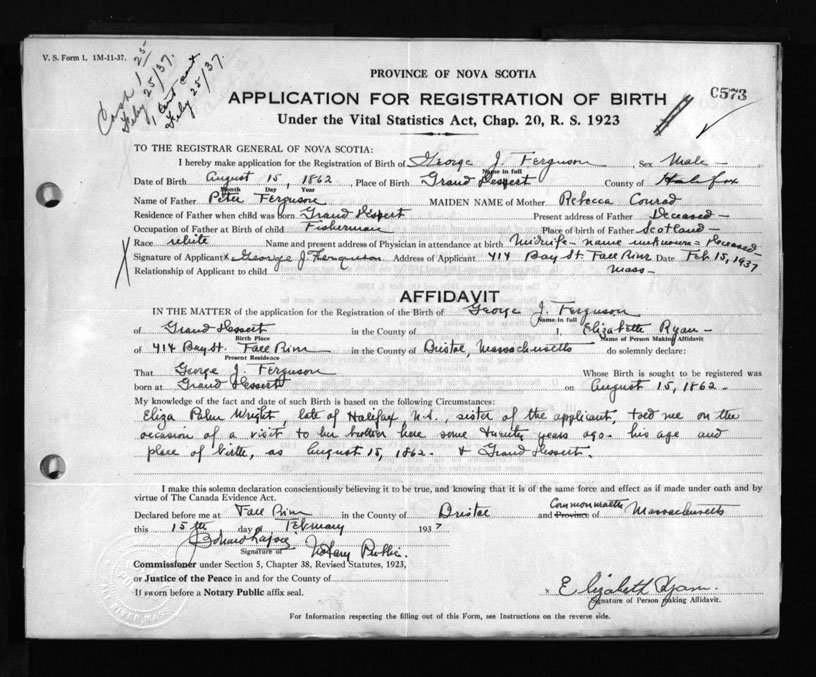 V. S. Form 1. 1M-11-37.
Cash 1 25
Feby 25/37.
1 cert
Feby 25/37.
PROVINCE OF NOVA SCOTIA
C573
APPLICATION FOR REGISTRATION OF BIRTH
Under the Vital Statistics Act, Chap. 20, R. S. 1923
TO THE REGISTRAR GENERAL OF NOVA SCOTIA:
I hereby make application for the Registration of Birth of George J. Ferguson, Sex Male
Name in full
Date of Birth August 15, 1862, Place of Birth Grand Dessert County of Halifax
Month Day Year
Name of Father Peter Ferguson MAIDEN NAME of Mother Rebecca Conrad
Residence of Father when child was born Grand Dessert Present address of Father Deceased
Occupation of Father at Birth of child Fisherman Place of birth of Father Scotland
Race white Name and present address of Physician in attendance at birth Midwife - name unknown = Deceased
X Signature of Applicant X George J. Ferguson Address of Applicant 414 Bay St. Fall River Date Feb 15, 1937
Relationship of Applicant to child Mass
AFFIDAVIT
IN THE MATTER of the application for the Registration of the Birth of George J. Ferguson
Name in full
of Grand Dessert in the County of I, Elizabeth Ryan
Birth Place Name of Person Making Affidavit
of 414 Bay St. Fall River in the County of Bristol, Massachusetts do solemnly declare:
Present Residence
That George J. Ferguson Whose Birth is sought to be registered was
born at Grand Dessert on August 15, 1862.
My knowledge of the fact and date of such Birth is based on the following Circumstances:
Eliza Wright, late of Halifax N.S., sister of the applicant, told me on the
occasion of a visit to her brother here some twenty years ago. his age and
place of birth, as August 15, 1862. & Grand Dessert.
I make this solemn declaration conscientiously believing it to be true, and knowing that it is of the same force and effect as if made under oath and by
virtue of The Canada Evidence Act.
Commonwealth
Declared before me at Fall River in the County of Bristol and Province of Massachusetts
this 15th day of February 1937
Notary Public.
Signature of
Commissioner under Section 5, Chapter 38, Revised Statutes, 1923,
or Justice of the Peace in and for the County of
If sworn before a Notary Public affix seal.
x Elizabeth Ryan.
Signature of Person making Affidavit.
For Information respecting the filling out of this Form, see Instructions on the reverse side.